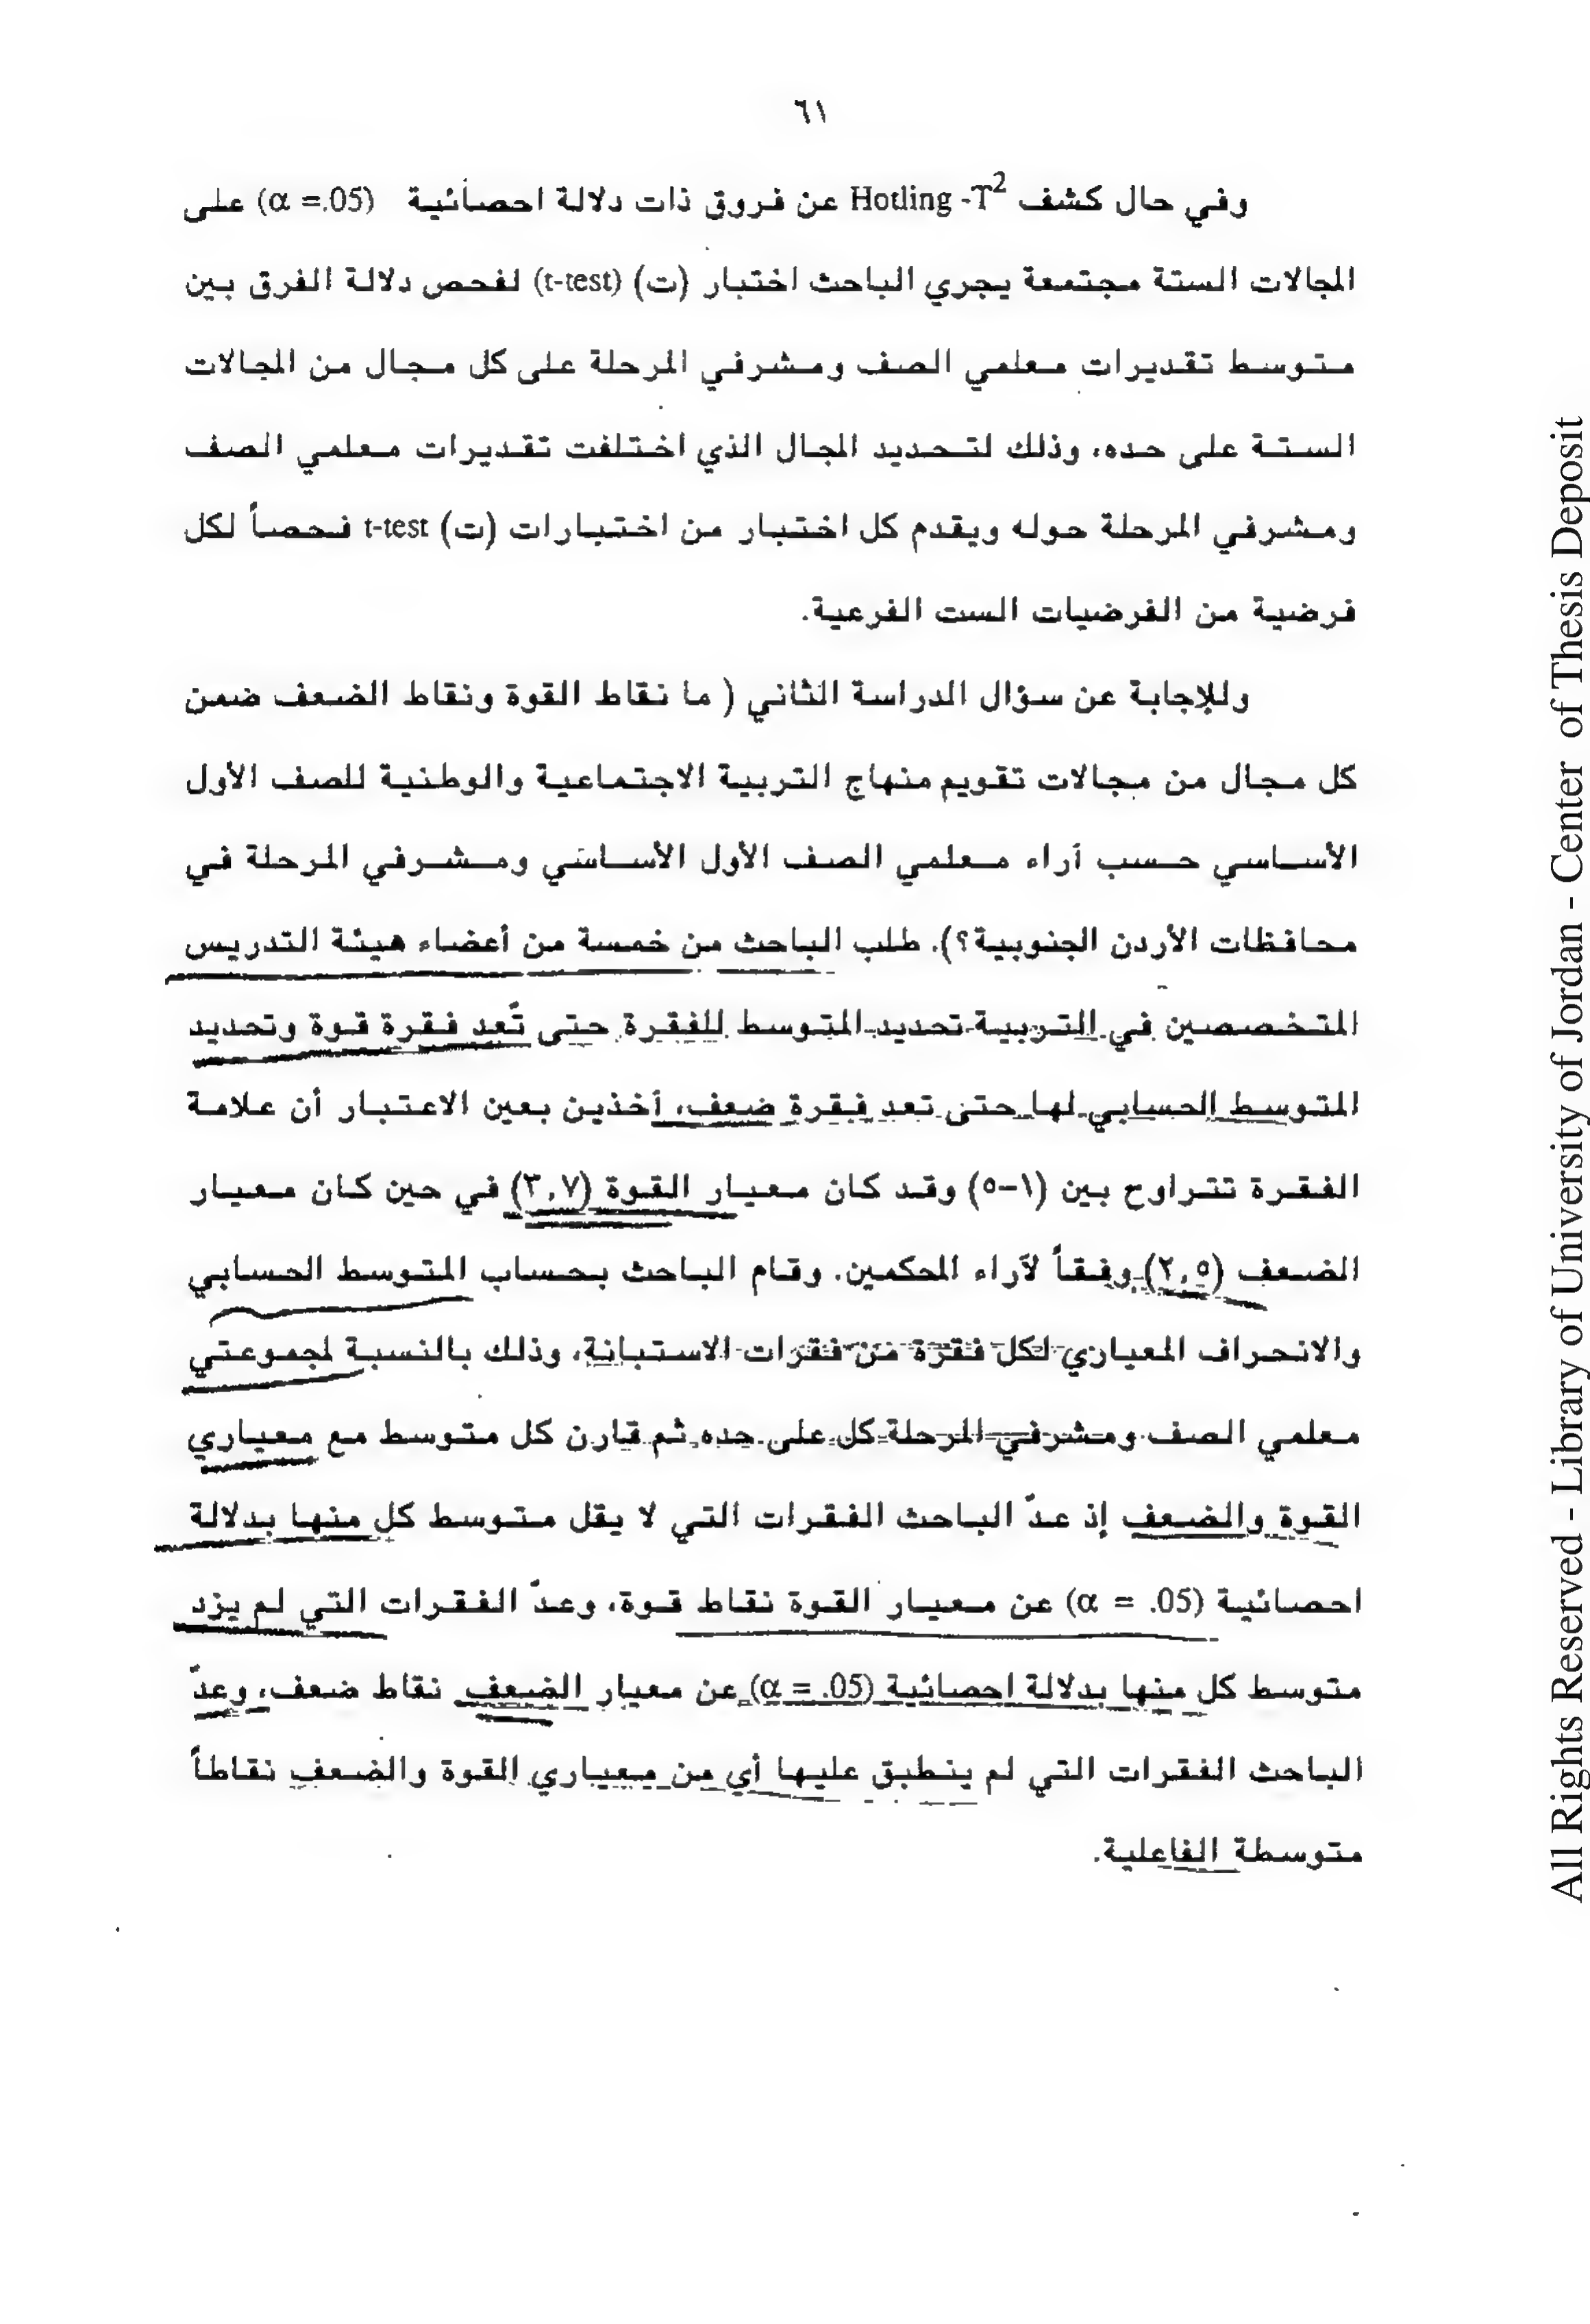 ٦١
وفي حال كشف Hotling -T² عن فروق ذات دلالة احصائية (α =.05) على
المجالات الستة مجتمعة يجري الباحث اختبار (ت) (t-test) لفحص دلالة الفرق بين
متوسط تقديرات معلمي الصف ومشرفي المرحلة على كل مجال من المجالات
الستة على حده، وذلك لتحديد المجال الذي اختلفت تقديرات معلمي الصف
ومشرفي المرحلة حوله ويقدم كل اختبار من اختبارات (ت) t-test فحصاً لكل
فرضية من الفرضيات الست الفرعية.
وللإجابة عن سؤال الدراسة الثاني ( ما نقاط القوة ونقاط الضعف ضمن
كل مجال من مجالات تقويم منهاج التربية الاجتماعية والوطنية للصف الأول
الأساسي حسب آراء معلمي الصف الأول الأساسي ومشرفي المرحلة في
محافظات الأردن الجنوبية؟). طلب الباحث من خمسة من أعضاء هيئة التدريس
المتخصصين في التربية تحديد المتوسط للفقرة حتى تُعد فقرة قوة وتحديد
المتوسط الحسابي لها حتى تعد فقرة ضعف، أخذين بعين الاعتبار أن علامة
الفقرة تتراوح بين (١-٥) وقد كان معيار القوة (٣,٧) في حين كان معيار
الضعف (٢,٥) وفقاً لآراء المحكمين. وقام الباحث بحساب المتوسط الحسابي
والانحراف المعياري لكل فقرة من فقرات الاستبانة، وذلك بالنسبة لمجموعتي
معلمي الصف ومشرفي المرحلة كل على حده ثم قارن كل متوسط مع معياري
القوة والضعف إذ عدّ الباحث الفقرات التي لا يقل متوسط كل منها بدلالة
احصائية (α = .05) عن معيار القوة نقاط قوة، وعدّ الفقرات التي لم يزد
متوسط كل منها بدلالة احصائية (α = .05) عن معيار الضعف نقاط ضعف، وعدّ
الباحث الفقرات التي لم ينطبق عليها أي من معياري القوة والضعف نقاطاً
متوسطة الفاعلية.
All Rights Reserved - Library of University of Jordan - Center of Thesis Deposit